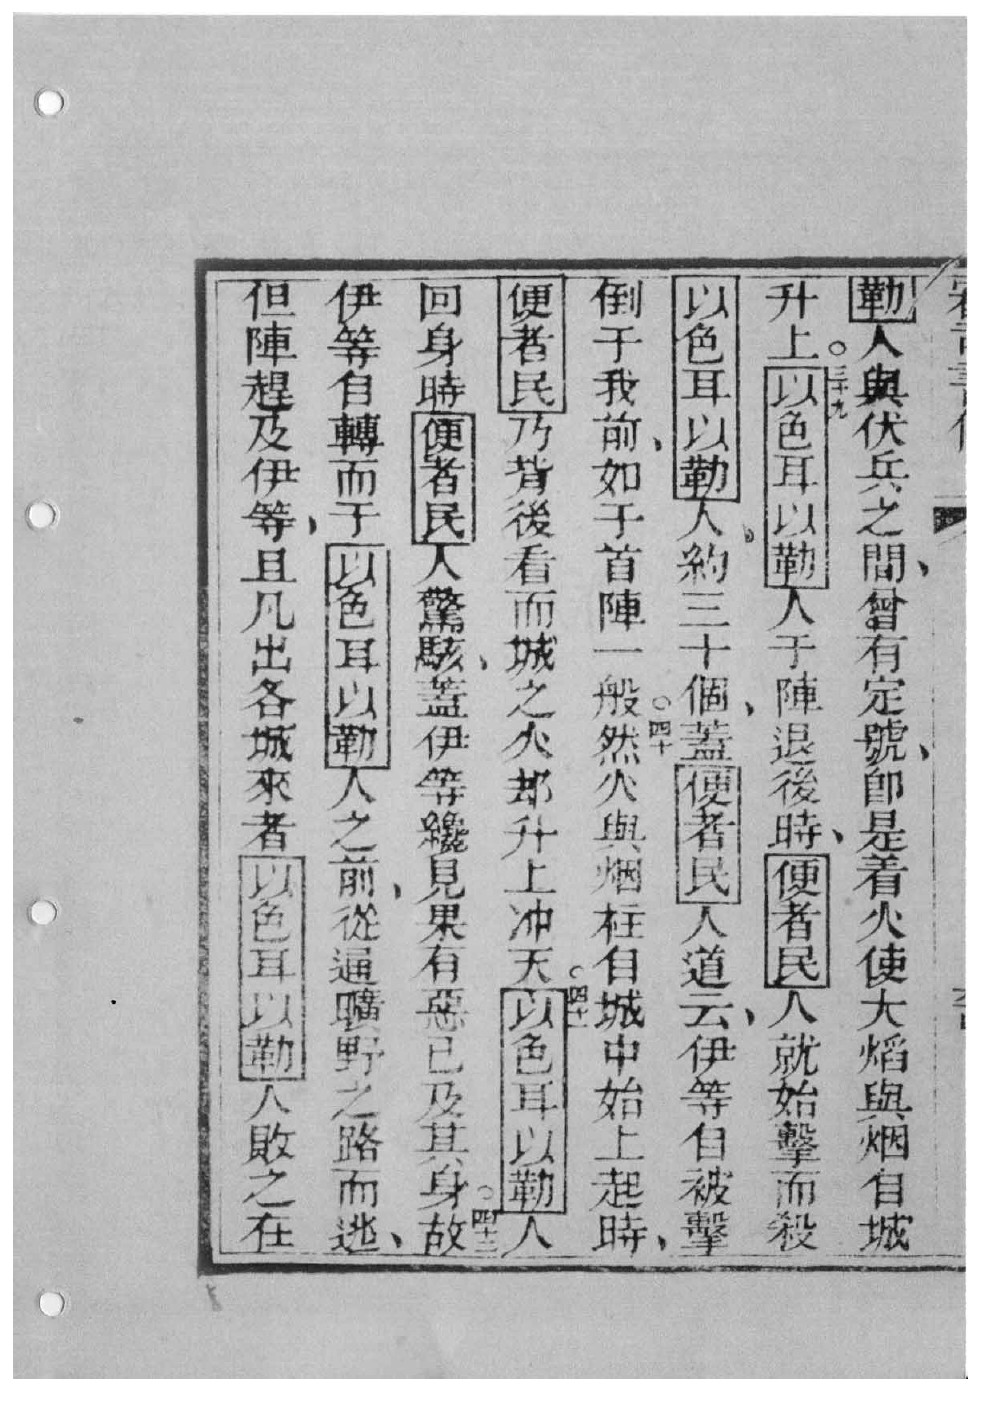 勒人與伏兵之間、曾有定號、卽是着火使大熖與烟自城
升上。三十九以色耳以勒人于陣退後時、便者民人就始擊而殺
以色耳以勒人、約三十個、蓋便者民人道云、伊等自被擊
倒于我前、如于首陣一般。四十然火與烟柱自城中始上起時、
便者民乃背後看而城之火却升上冲天。四十一以色耳以勒人
回身時便者民人驚駭、蓋伊等纔見果有惡已及其身。四十二故
伊等自轉而于以色耳以勒人之前、從通曠野之路而逃、
但陣趕及伊等、且凡出各城來者以色耳以勒人敗之在